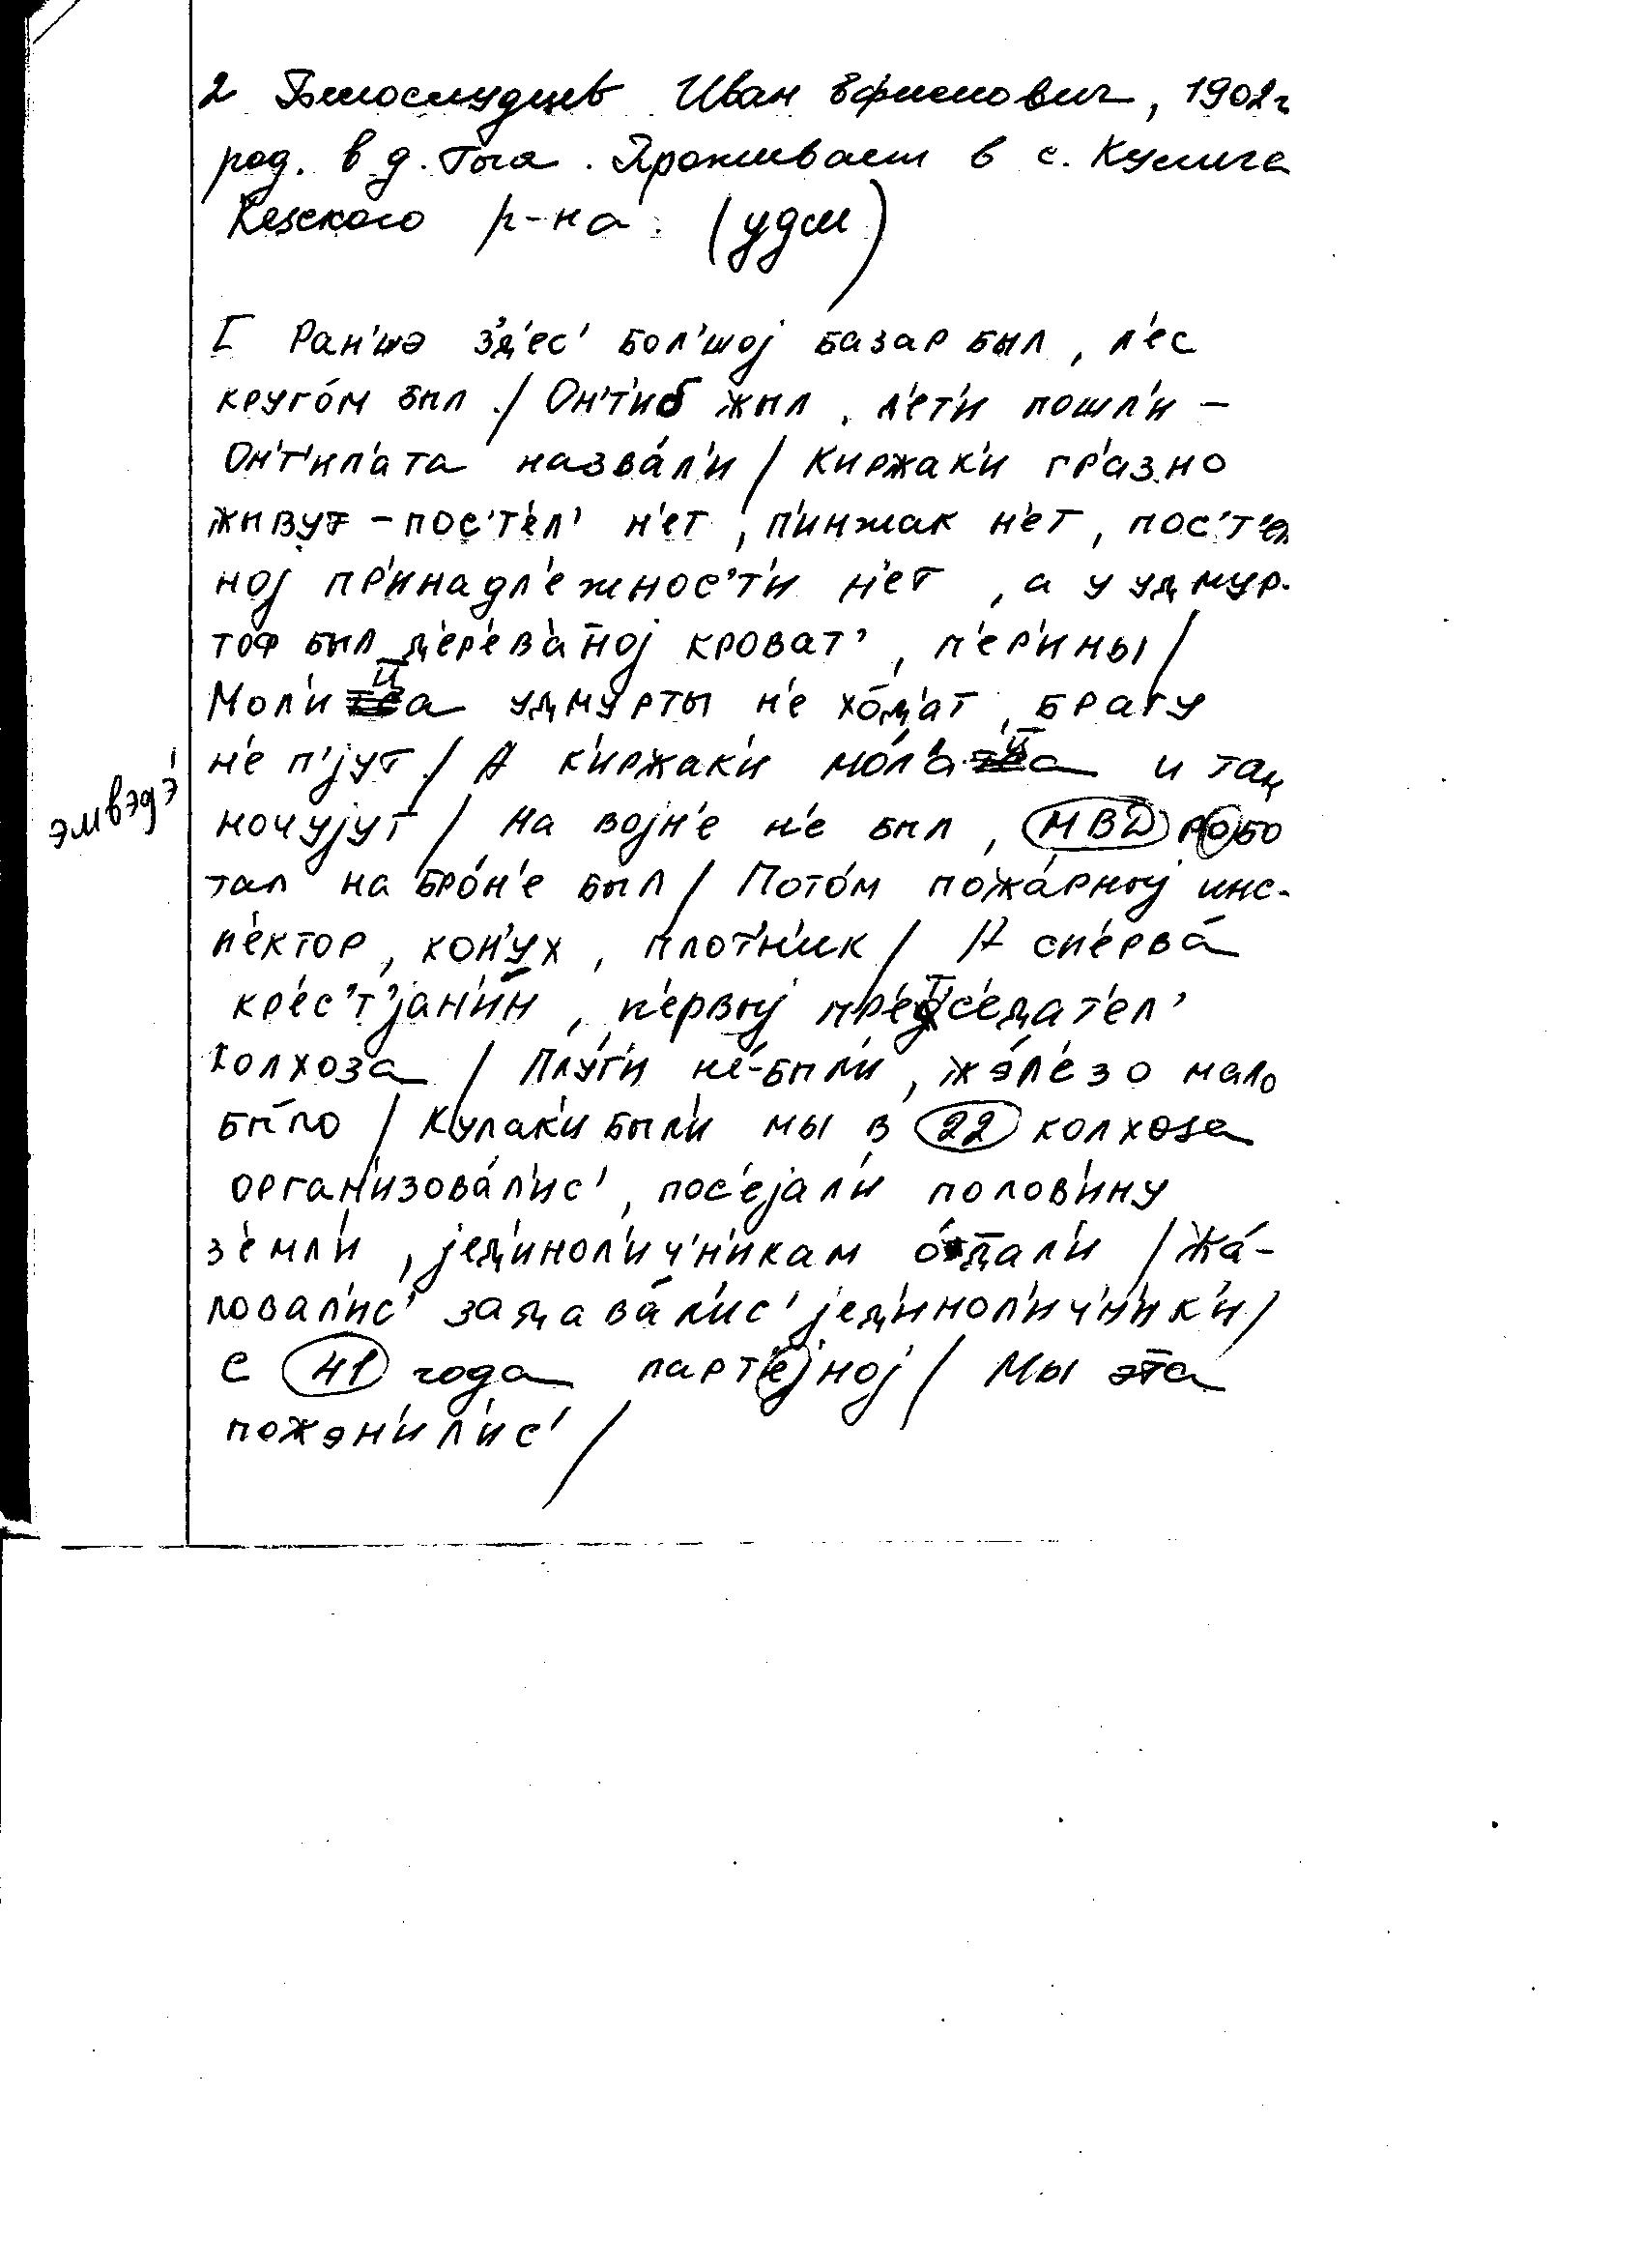 2 Белослудцев Иван Ефимович, 1902 г
род. в д. Гыя. Проживает в с. Кулига
Кезского р-на. (удм)
I Ран'шэ з'д'ес' бол'шој базар был, л'ес
круго́м был./ Он'т'иб жыл, д'ет'и пошл'и –
Он'т'ип'ата назва́л'и / Киржак'и гр'азно
жывут – пос'т'ел' н'ет, п'инжак н'ет, пос'т'ел
ној пр'инадл'ежнос'т'и н'ет, а у удмур-
тоф был д'ер'ев'а́ној кроват', п'ер'ины /
Мол'ица удмурты н'е хо́д'ат, брагу
н'е п'јут./ А к'иржак'и мо́л'аца и там
эмвэдэ́
ночујут / На војн'е н'е был, МВД робо
тал на бро́н'е был / Пото́м пожа́рныј инс-
п'ектор, кон'ух, плот'н'ик / А сп'ерва́
кр'ес'т'јан'ин, п'ервыј пр'етс'едат'ел'
колхоза / Плу́г'и н'е́-был'и, жэл'е́зо мало
бы́ло / Кулак'и был'и мы в 22 колхоза
орган'изова́л'ис', пос'ејал'и полов'ину
з'емл'и, јед'инол'ич'н'икам о́тдал'и / Жа́-
ловал'ис' задава́л'ис' јед'инол'ич'н'ик'и /
С 41 года парт'ејној / Мы эта
пожэн'ил'ис' /